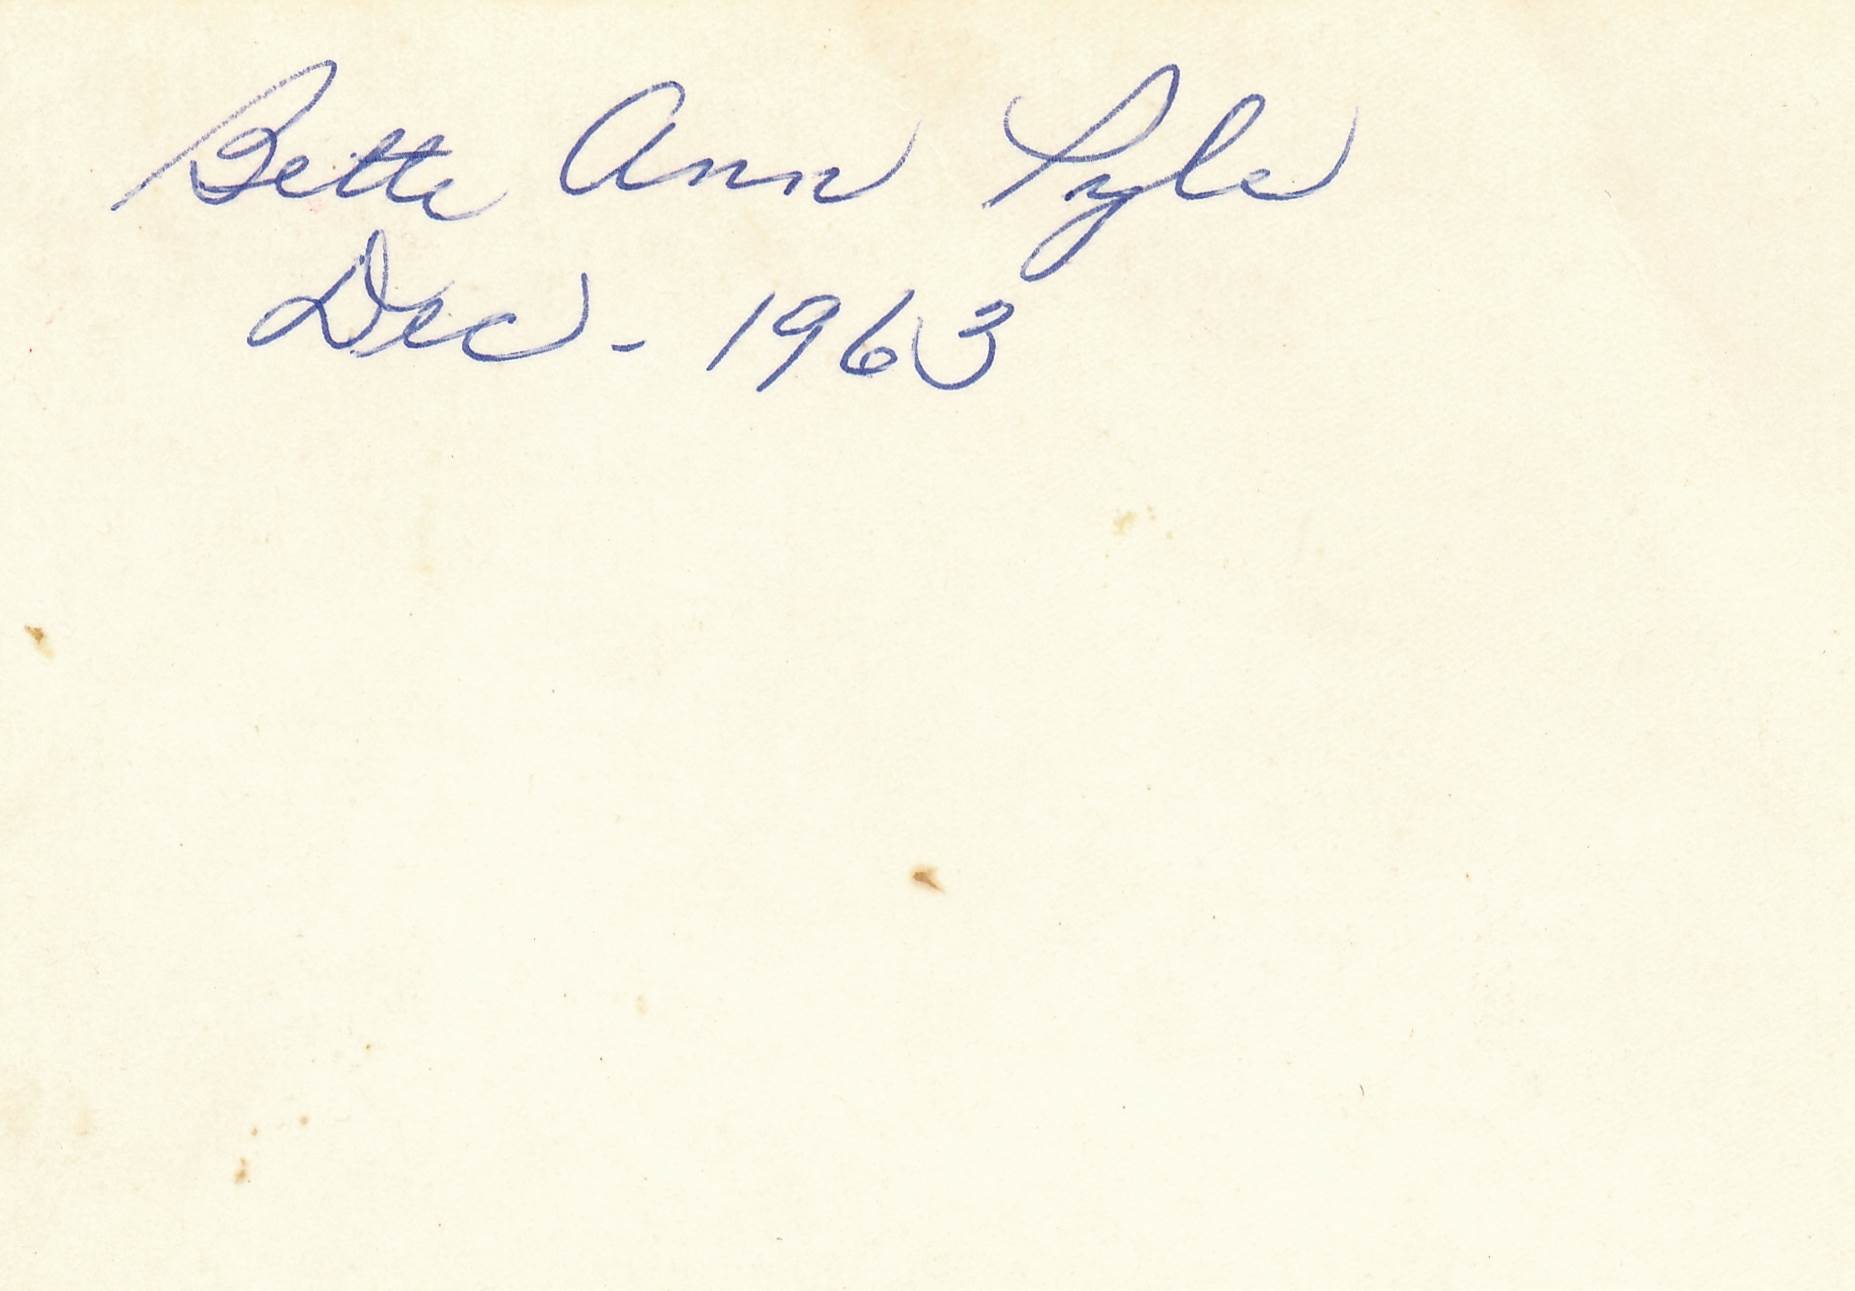 Bette Ann Pyle
Dec - 1963